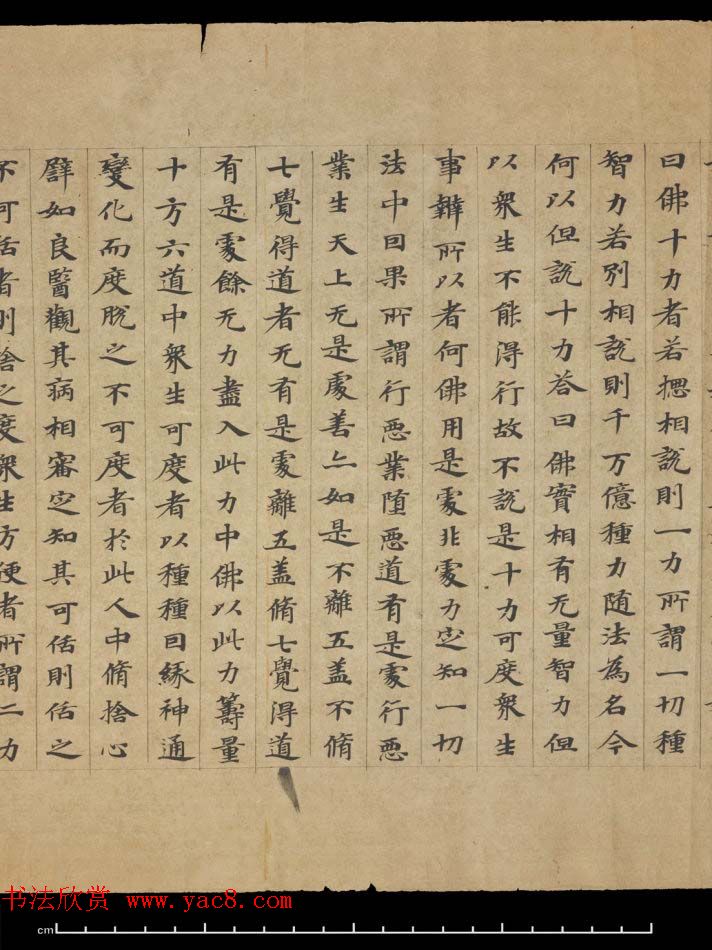 曰佛十力者若揔相說則一力所謂一切種
智力若別相說則千万億種力随法為名今
何以但說十力荅曰佛實相有无量智力但
以衆生不能得行故不說是十力可度衆生
事辦所以者何佛用是處非處力定知一切
法中因果所謂行惡業堕惡道有是處行惡
業生天上无是處善亦如是不離五盖不脩
七覺得道者无有是處離五盖脩七覺得道
有是處餘九力盡入此力中佛以此力籌量
十方六道中衆生可度者以種種因縁神通
變化而度脱之不可度者於此人中脩捨心
譬如良醫觀其病相審定知其可活則活之
不可活者則捨之度衆生方便者所謂二力
书法欣赏 www.yac8.com
cm